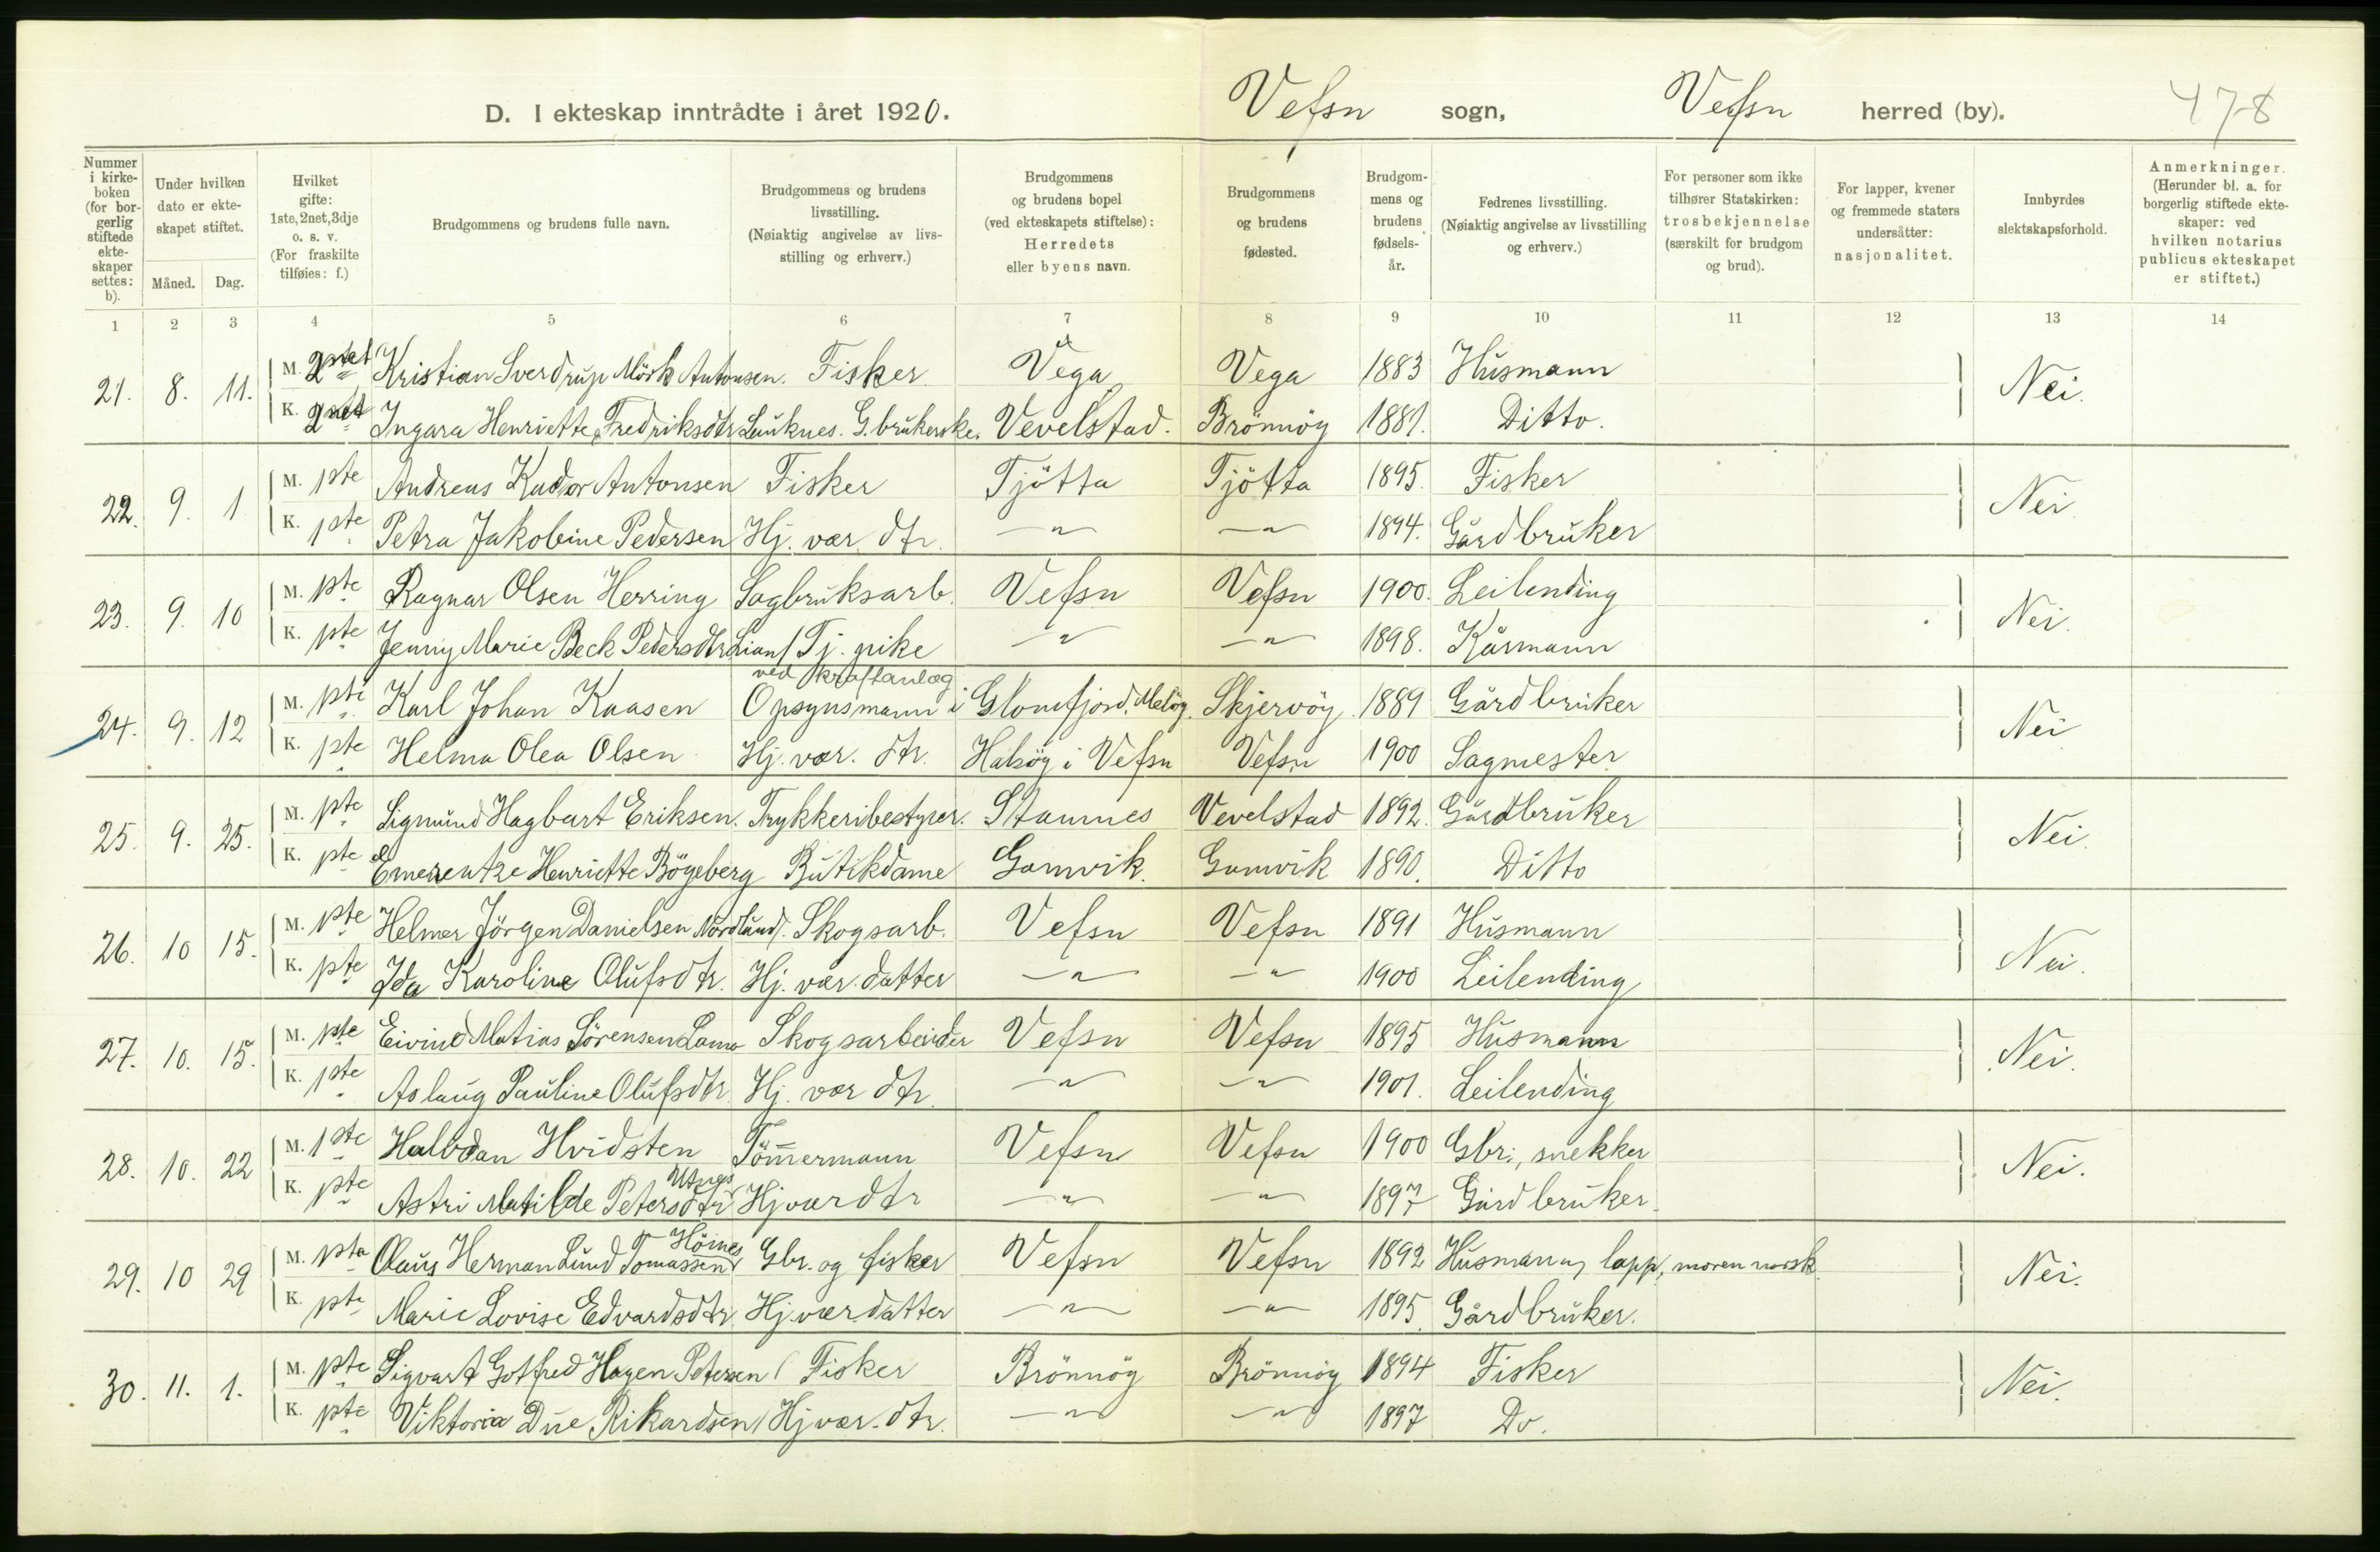 D. I ekteskap inntrådte i året 1920. Vefsn sogn, Vefsn herred (by). 478
Nummer i kirke-boken (for bor-gerlig stiftede ekte-skaper settes: b).
Under hvilken dato er ekte-skapet stiftet.
Måned. Dag.
Hvilket gifte: 1ste, 2net, 3dje o. s. v. (For fraskilte tilføies: f.)
Brudgommens og brudens fulle navn.
Brudgommens og brudens livsstilling. (Nøiaktig angivelse av livs-stilling og erhverv.)
Brudgommens og brudens bopel (ved ekteskapets stiftelse): Herredets eller byens navn.
Brudgommens og brudens fødested.
Brudgom-mens og brudens fødsels-år.
Fedrenes livsstilling. (Nøiaktig angivelse av livsstilling og erhverv.)
For personer som ikke tilhører Statskirken: trosbekjennelse (særskilt for brudgom og brud).
For lapper, kvener og fremmede staters undersåtter: nasjonalitet.
Innbyrdes slektskapsforhold.
Anmerkninger. (Herunder bl. a. for borgerlig stiftede ekte-skaper: ved hvilken notarius publicus ekteskapet er stiftet.)
1 2 3 4 5 6 7 8 9 10 11 12 13 14
21. 8. 11. M. 2net Kristian Sverdrup Mörk Antonsen. Fisker Vega Vega 1883 Husmann Nei.
K. 2net Ingara Henriette Fredriksdtr Lauknes. G.brukerske. Vevelstad. Brönnöy 1881. Ditto.
22. 9. 1 M. 1ste Andreas Kudor Antonsen Fisker Tjötta Tjötta 1895. Fisker Nei
K. 1ste Petra Jakobine Pedersen Hj. vær. dtr. —"— —"— 1894. Gårdbruker
23. 9. 10 M. 1ste Ragnar Olsen Herring Sagbruksarb. Vefsn Vefsn 1900. Leilending Nei.
K. 1ste Jenny Marie Beck Pedersdtr Lian Tj. pike —"— —"— 1898. Kårmann
ved kraftanlæg
24. 9. 12 M. 1ste Karl Johan Kaasen Opsynsmann i Glomfjord, Melöy. Skjervöy 1889 Gårdbruker Nei
K. 1ste Helma Olea Olsen Hj. vær. dtr. Halsöy i Vefsn Vefsn 1900 Sagmester
25. 9. 25. M. 1ste Sigmund Hagbart Eriksen. Trykkeribestyrer. Stamnes Vevelstad 1892. Gårdbruker Nei.
K. 1ste Emerentze Henriette Bögeberg Butikdame Gamvik. Gamvik 1890. Ditto
26. 10 15. M. 1ste Helmer Jörgen Danielsen Nordlund. Skogsarb. Vefsn Vefsn 1891 Husmann Nei.
K. 1ste Ida Karoline Olufsdtr. Hj. vær. datter —"— —"— 1900 Leilending
27. 10. 15. M. 1ste Eivind Matias Sörensen Lamo Skogsarbeider Vefsn Vefsn 1895 Husmann Nei.
K. 1ste Aslaug Pauline Olufsdtr. Hj. vær dtr. —"— —"— 1901. Leilending
28. 10. 22 M. 1ste Halvdan Hvidsten Tömmermann Vefsn Vefsn 1900 Gbr., snekker Nei.
Utnes
K. 1ste Astri Matilde Petersdtr Hj vær dtr —"— —"— 1897 Gårdbruker.
Höines
29. 10 29 M. 1ste Olaus Herman Lund Tomassen Gbr. og fisker Vefsn Vefsn 1892 Husmann, lapp, moren norsk. Nei.
K. 1ste Marie Lovise Edvardsdtr. Hj. vær. datter —"— —"— 1895. Gårdbruker.
30. 11. 1. M. 1ste Sigvart Gotfred Hagen Petersen Fisker Brönnöy Brönnöy 1894 Fisker Nei.
K. 1ste Viktoria Due Rikardsen Hj vær. dtr. —"— —"— 1897 Do.